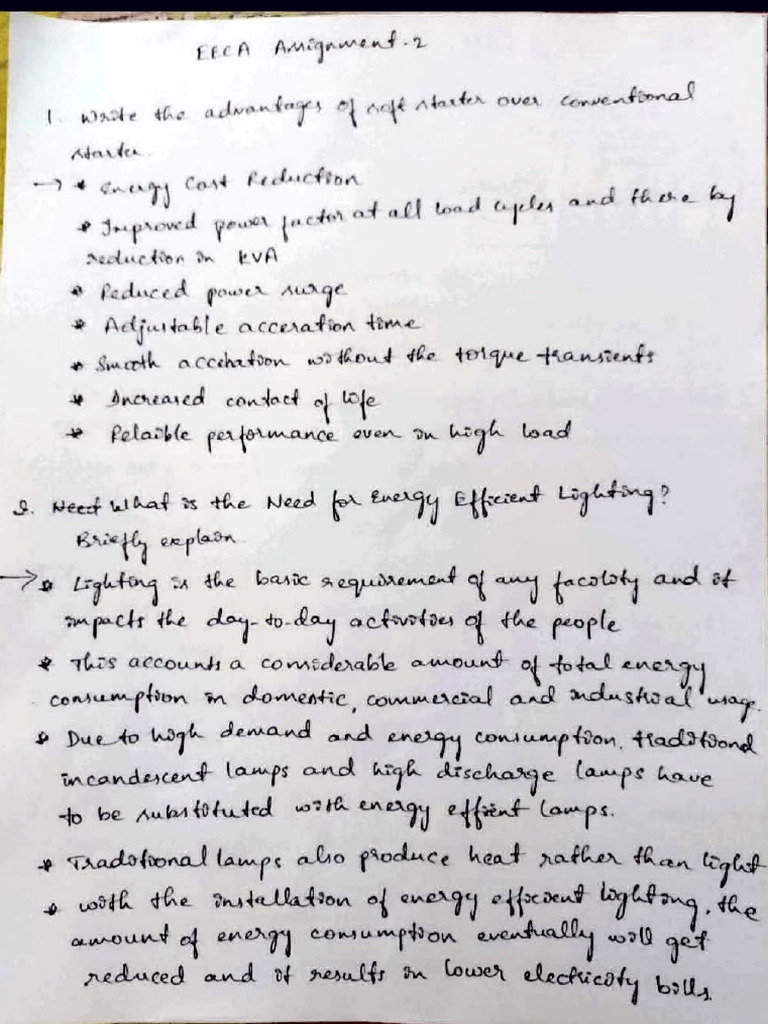 EECA Assignment-2
1. Write the advantages of soft starter over conventional
starter.
→ * Energy Cost Reduction
* Improved power factor at all load cycles and there by
reduction in KVA
* Reduced power surge
* Adjustable acceration time
* Smooth acceration without the torque transients
* Increased contact of life
* Relaible performance even in high load
2. Need What is the Need for Energy Efficient Lighting?
Briefly explain.
→ * Lighting is the basic requirement of any facility and it
impacts the day-to-day activities of the people
* This accounts a considerable amount of total energy
consumption in domestic, commercial and industrial usage.
* Due to high demand and energy consumption, traditional
incandescent lamps and high discharge lamps have
to be substituted with energy effient lamps.
* Traditional lamps also produce heat rather than light
* with the installation of energy efficient lighting, the
amount of energy consumption eventually will get
reduced and it results in lower electricity bills.